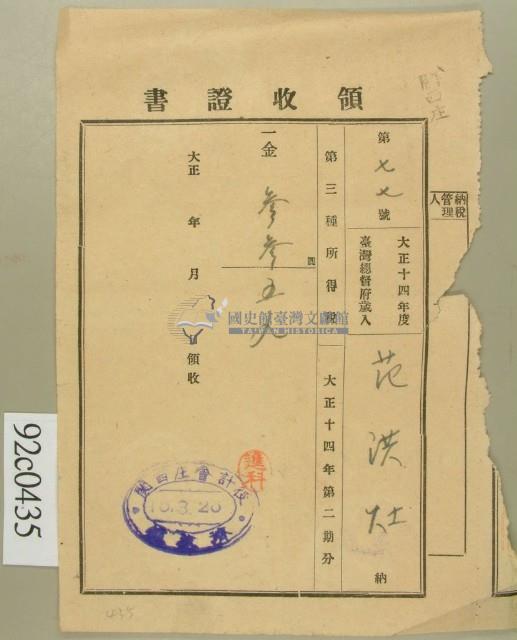 領收證書
關西庄
納稅管理人
第七七號
大正十四年度
臺灣總督府歲入
范洪灶 納
第三種所得稅
大正十四年第二期分
一金
參參五九
圓
大正 年 月 日領收
國史館臺灣文獻館
TAIWAN HISTORICA
進科
關西庄會計役
15.3.20
92c0435
435